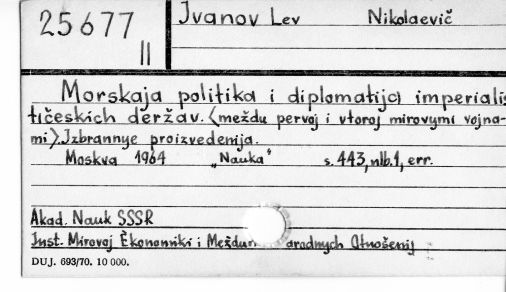 25677 II
Ivanov Lev Nikolaevič
Morskaja politika i diplomatija imperialis
tičeskich deržav. <meždu pervoj i vtoroj mirovymi vojna-
mi>. Izbrannye proizvedenija.
Moskva 1964 „Nauka" s. 443, nlb. 1, err.
Akad. Nauk SSSR
Inst. Mirovoj Ėkonomiki i Meždun arodnych Otnošenij
DUJ. 693/70. 10 000.